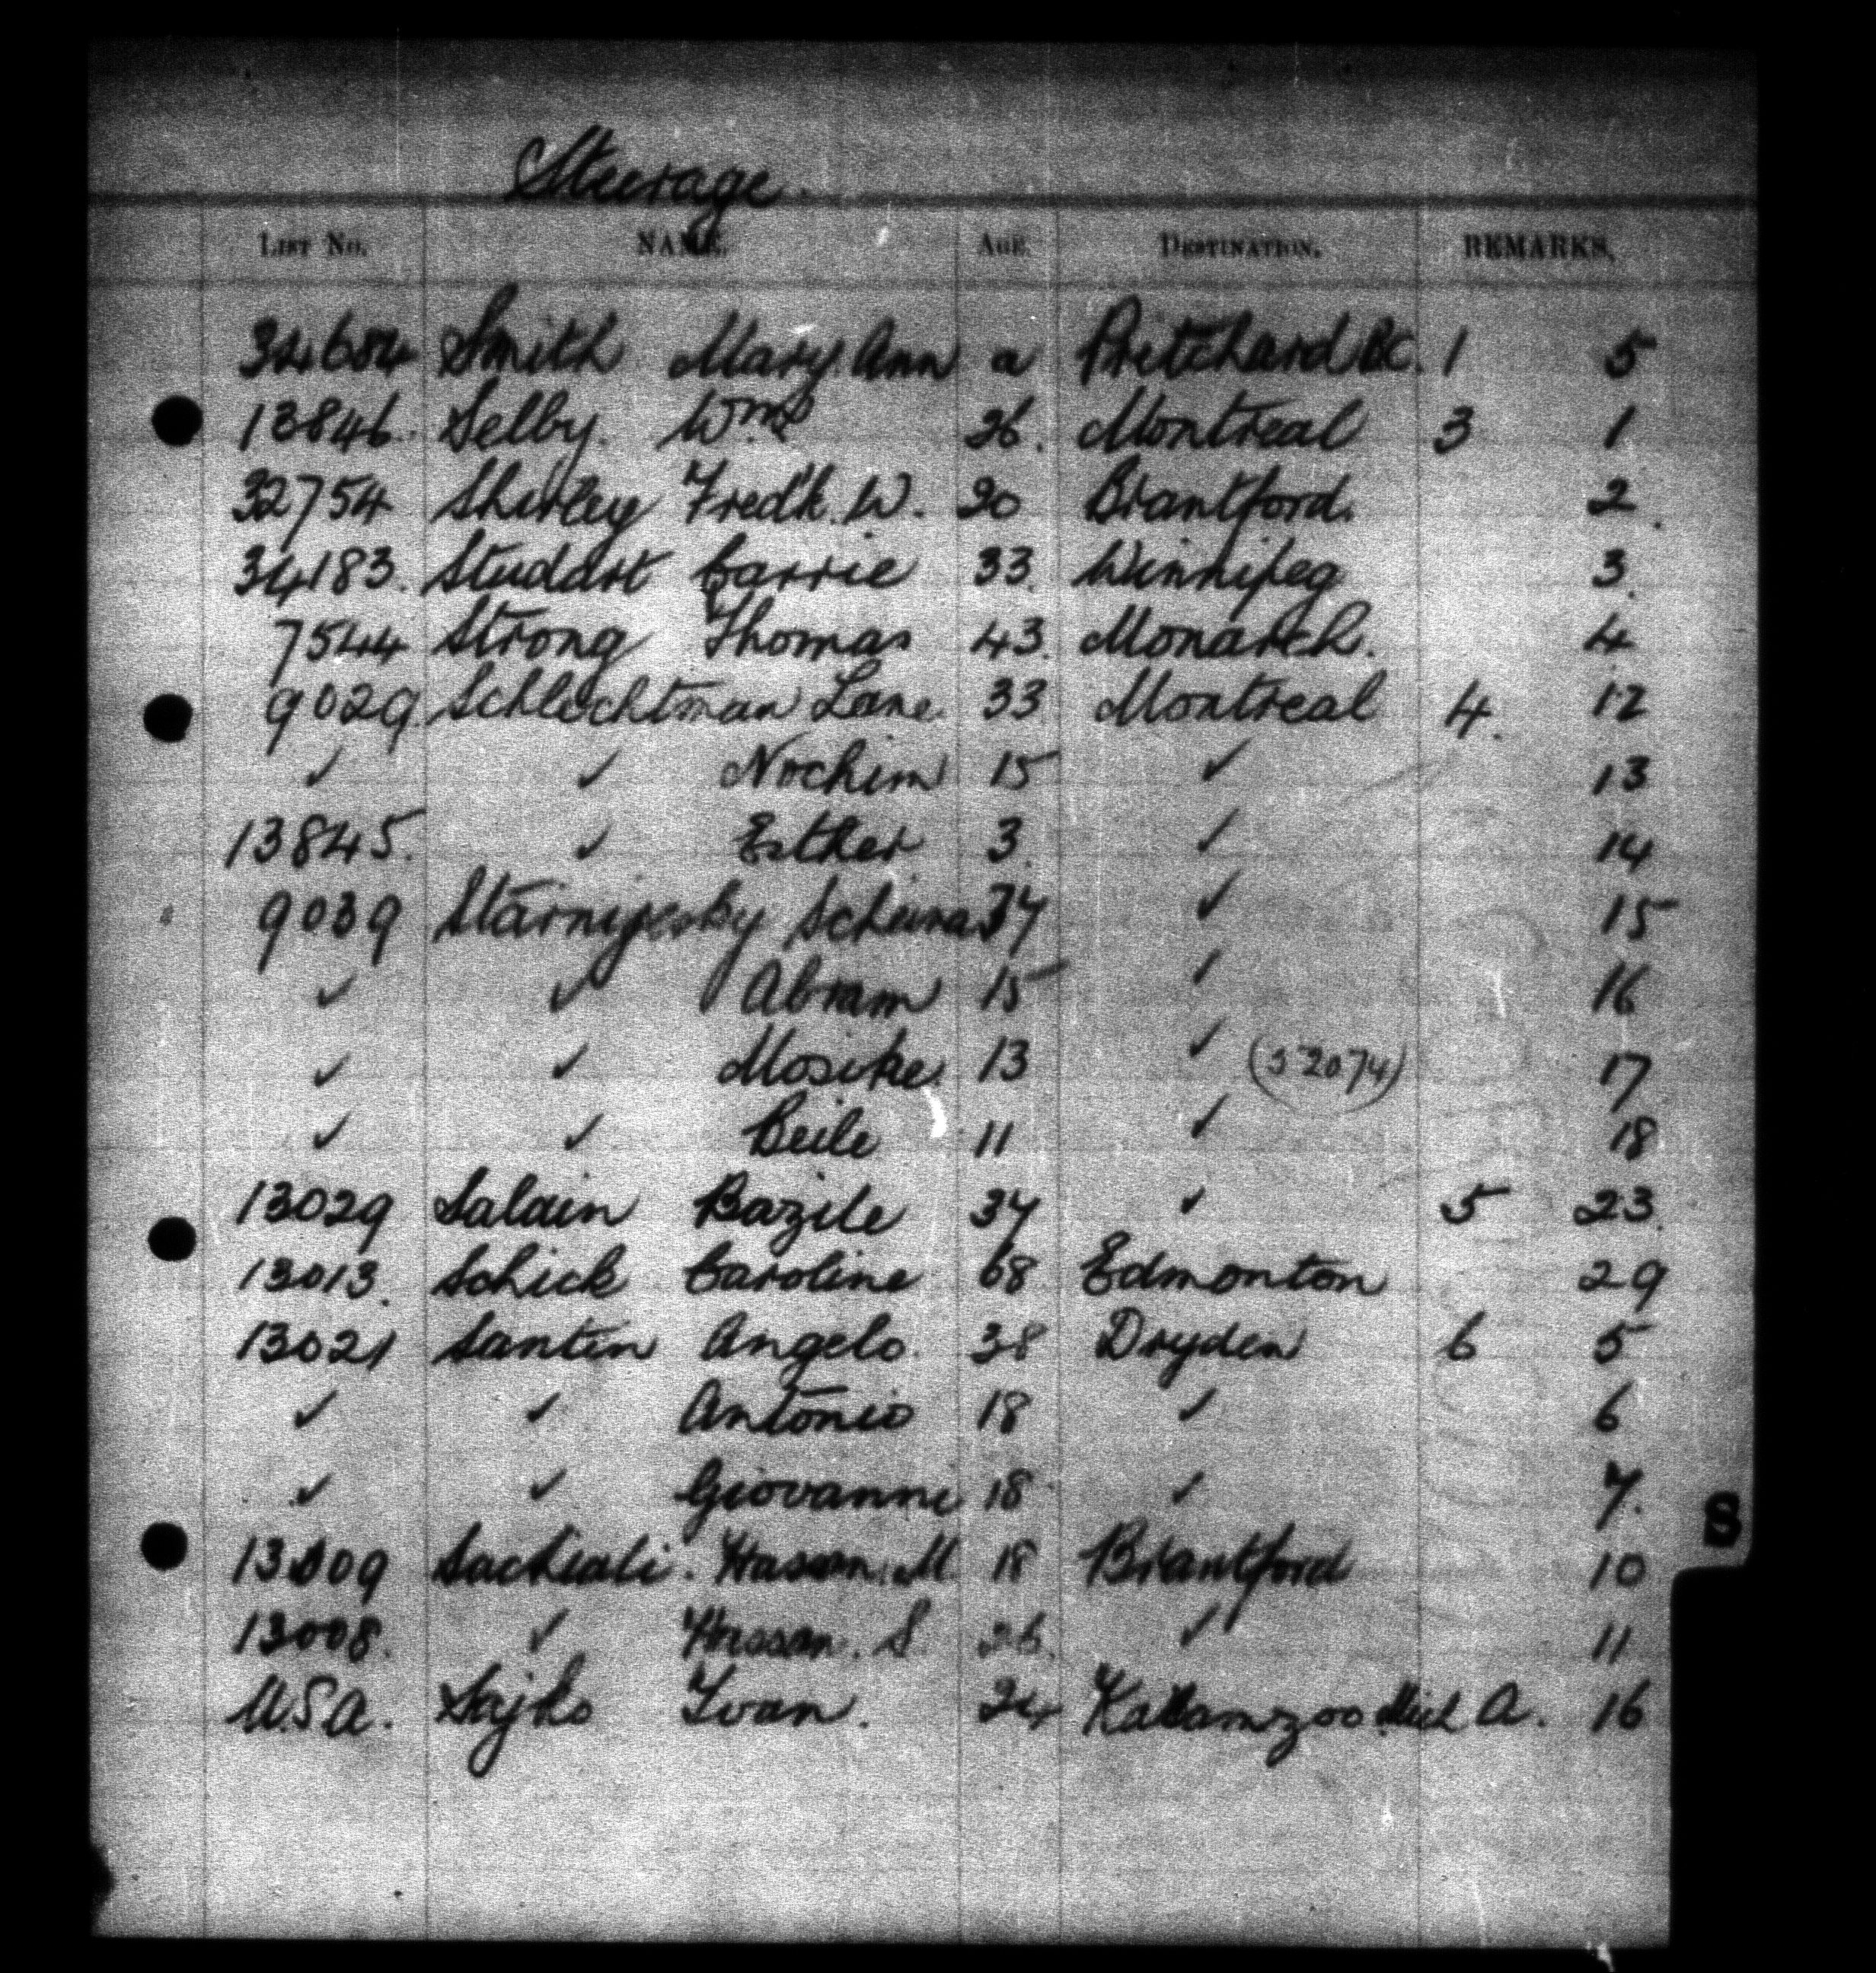 Steerage.
LIST No. NAME. AGE. DESTINATION. REMARKS.
34684 Smith Mary Ann a Pritchard BC. 1 5
13846. Selby. Wm 26. Montreal 3 1
32754 Shirley Fredk. W. 20 Brantford. 2.
34183. Studdart Carrie 33. Winnipeg 3.
7544 Strong Thomas 43. Monarch. 4
9029. Schlechtman Lane. 33 Montreal 4. 12
✓ ✓ Nochim 15 ✓ 13
13845. ✓ Esther 3. ✓ 14
9039 Scheina 37 ✓ 15
✓ ✓ Abram 15 ✓ 16
✓ ✓ Mosike 13 ✓ (32074) 17
✓ ✓ Beile 11 ✓ 18
13029 Salain Bazile 37 ✓ 5 23.
13013. Schick Caroline 68 Edmonton 29
13021 Santin Angelo. 38 Dryden 6 5
✓ ✓ Antonio 18 ✓ 6
✓ ✓ Giovanni 18 ✓ 7.
S
13009 Sacheali. Hassan. M. 18 Brantford 10
13008. ✓ Hassan. S. 26. ✓ 11
U.S.A. Sajko Ivan. 24 Kalamzoo Mich A. 16